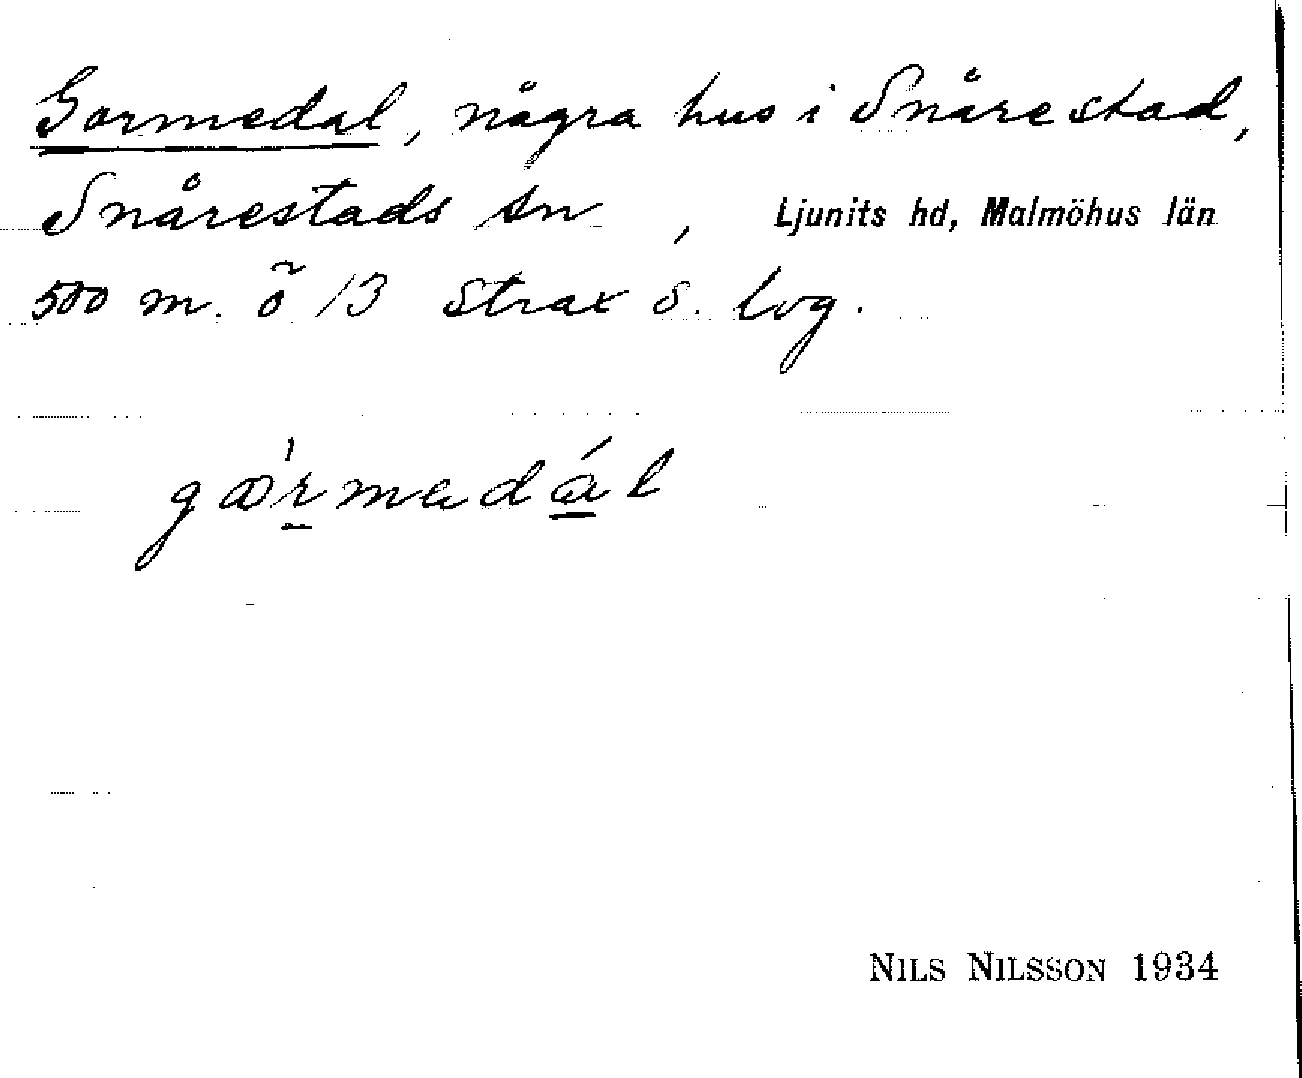 Gormedal, några hus i Snårestad,
Snårestads sn, Ljunits hd, Malmöhus län
500 m. õ 13 strax S. lvg.
gærmadál
NILS NILSSON 1934